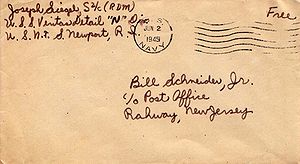 Joseph Siegel S2/c (RDM)
U.S.S. Vesta Detail "N" Div
U.S.N.T.S. Newport, R.I.
U.S.
JUN 2
1945
NAVY
Free
Bill Schneider, Jr.
c/o Post Office
Rahway, New Jersey